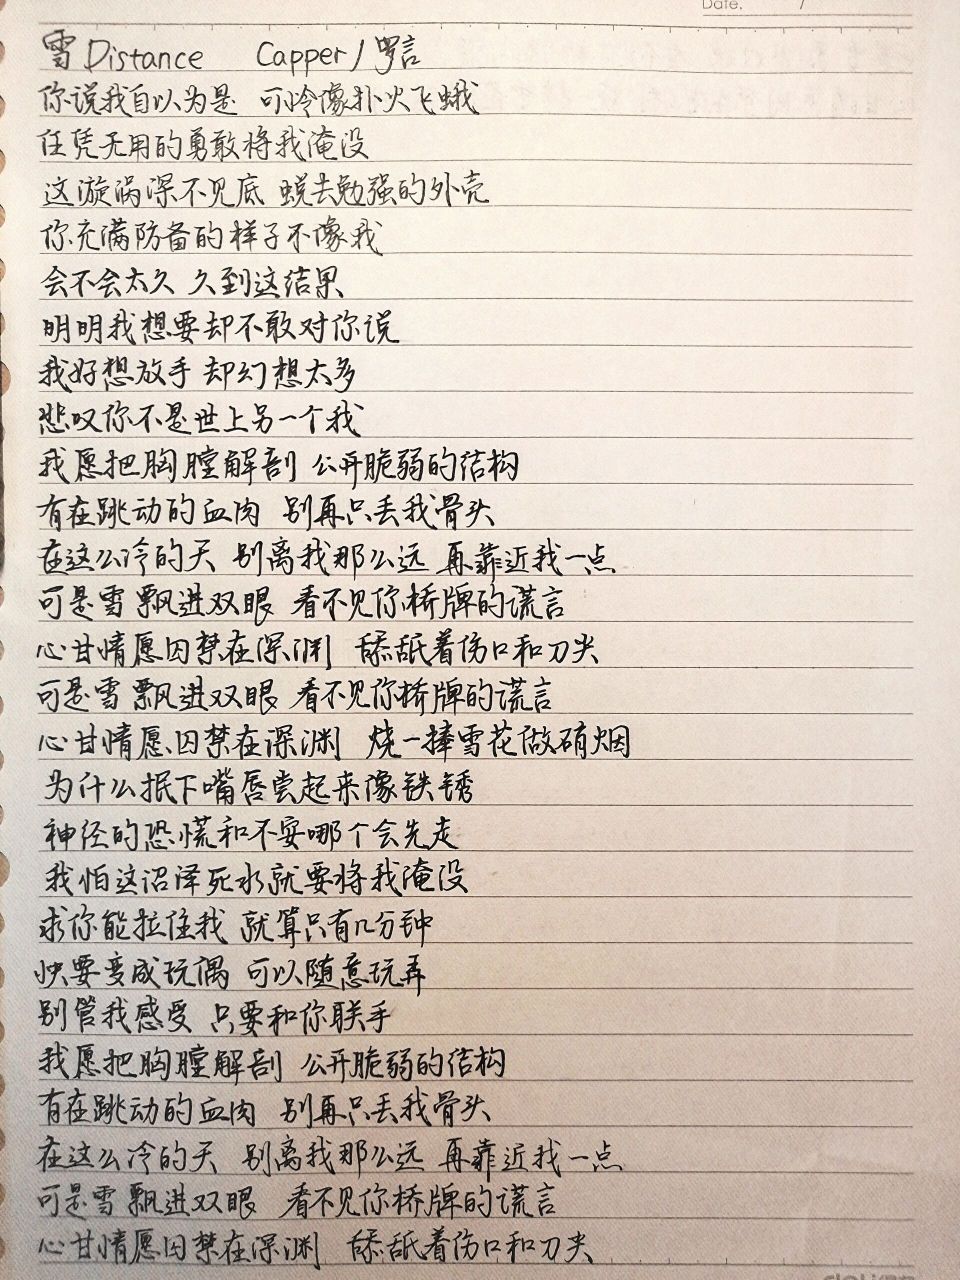 Date. /
雪Distance Capper/罗言
你说我自以为是 可怜像扑火飞蛾
任凭无用的勇敢将我淹没
这漩涡深不见底 蜕去勉强的外壳
你充满防备的样子不像我
会不会太久 久到这结果
明明我想要却不敢对你说
我好想放手 却幻想太多
悲叹你不是世上另一个我
我愿把胸膛解剖 公开脆弱的结构
有在跳动的血肉 别再只丢我骨头
在这么冷的天 别离我那么远 再靠近我一点
可是雪 飘进双眼 看不见你桥牌的谎言
心甘情愿囚禁在深渊 舔舐着伤口和刀尖
可是雪 飘进双眼 看不见你桥牌的谎言
心甘情愿囚禁在深渊 烧一捧雪花做硝烟
为什么抿下嘴唇尝起来像铁锈
神经的恐慌和不安哪个会先走
我怕这沼泽死水就要将我淹没
求你能拉住我 就算只有几分钟
快要变成玩偶 可以随意玩弄
别管我感受 只要和你联手
我愿把胸膛解剖 公开脆弱的结构
有在跳动的血肉 别再只丢我骨头
在这么冷的天 别离我那么远 再靠近我一点
可是雪 飘进双眼 看不见你桥牌的谎言
心甘情愿囚禁在深渊 舔舐着伤口和刀尖